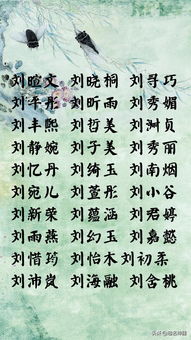 刘暄文 刘晓桐 刘寻巧
刘平彤 刘昕雨 刘秀媚
刘丰熙 刘哲美 刘洲贞
刘静婉 刘子美 刘秀丽
刘忆丹 刘绮玉 刘南烟
刘宛儿 刘萱彤 刘小谷
刘新荣 刘蕴涵 刘君婷
刘雨燕 刘幻玉 刘嘉懿
刘惜筠 刘怡木 刘初柔
刘沛岚 刘海融 刘含桃